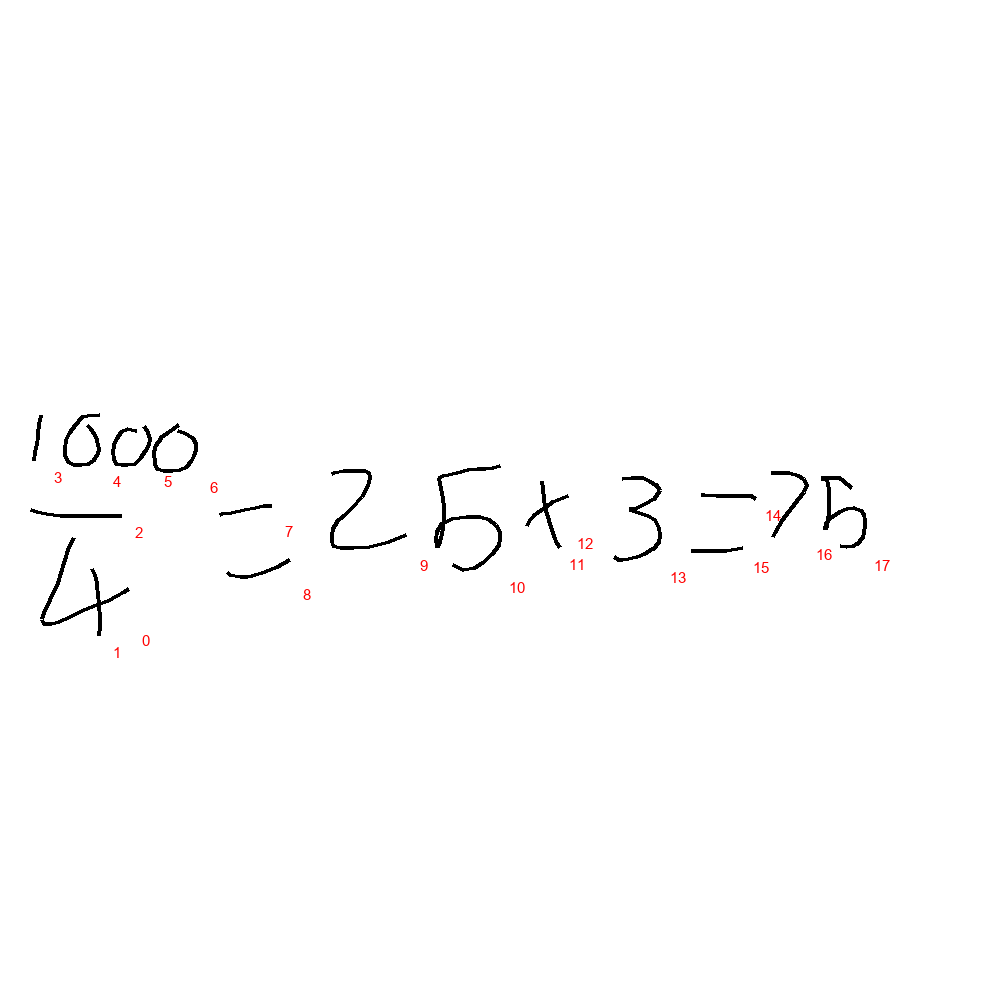 1000
4
= 25 × 3 = 75
3 4 5 6
2
7
8
9
10
11
12
13
14
15
16
17
1
0